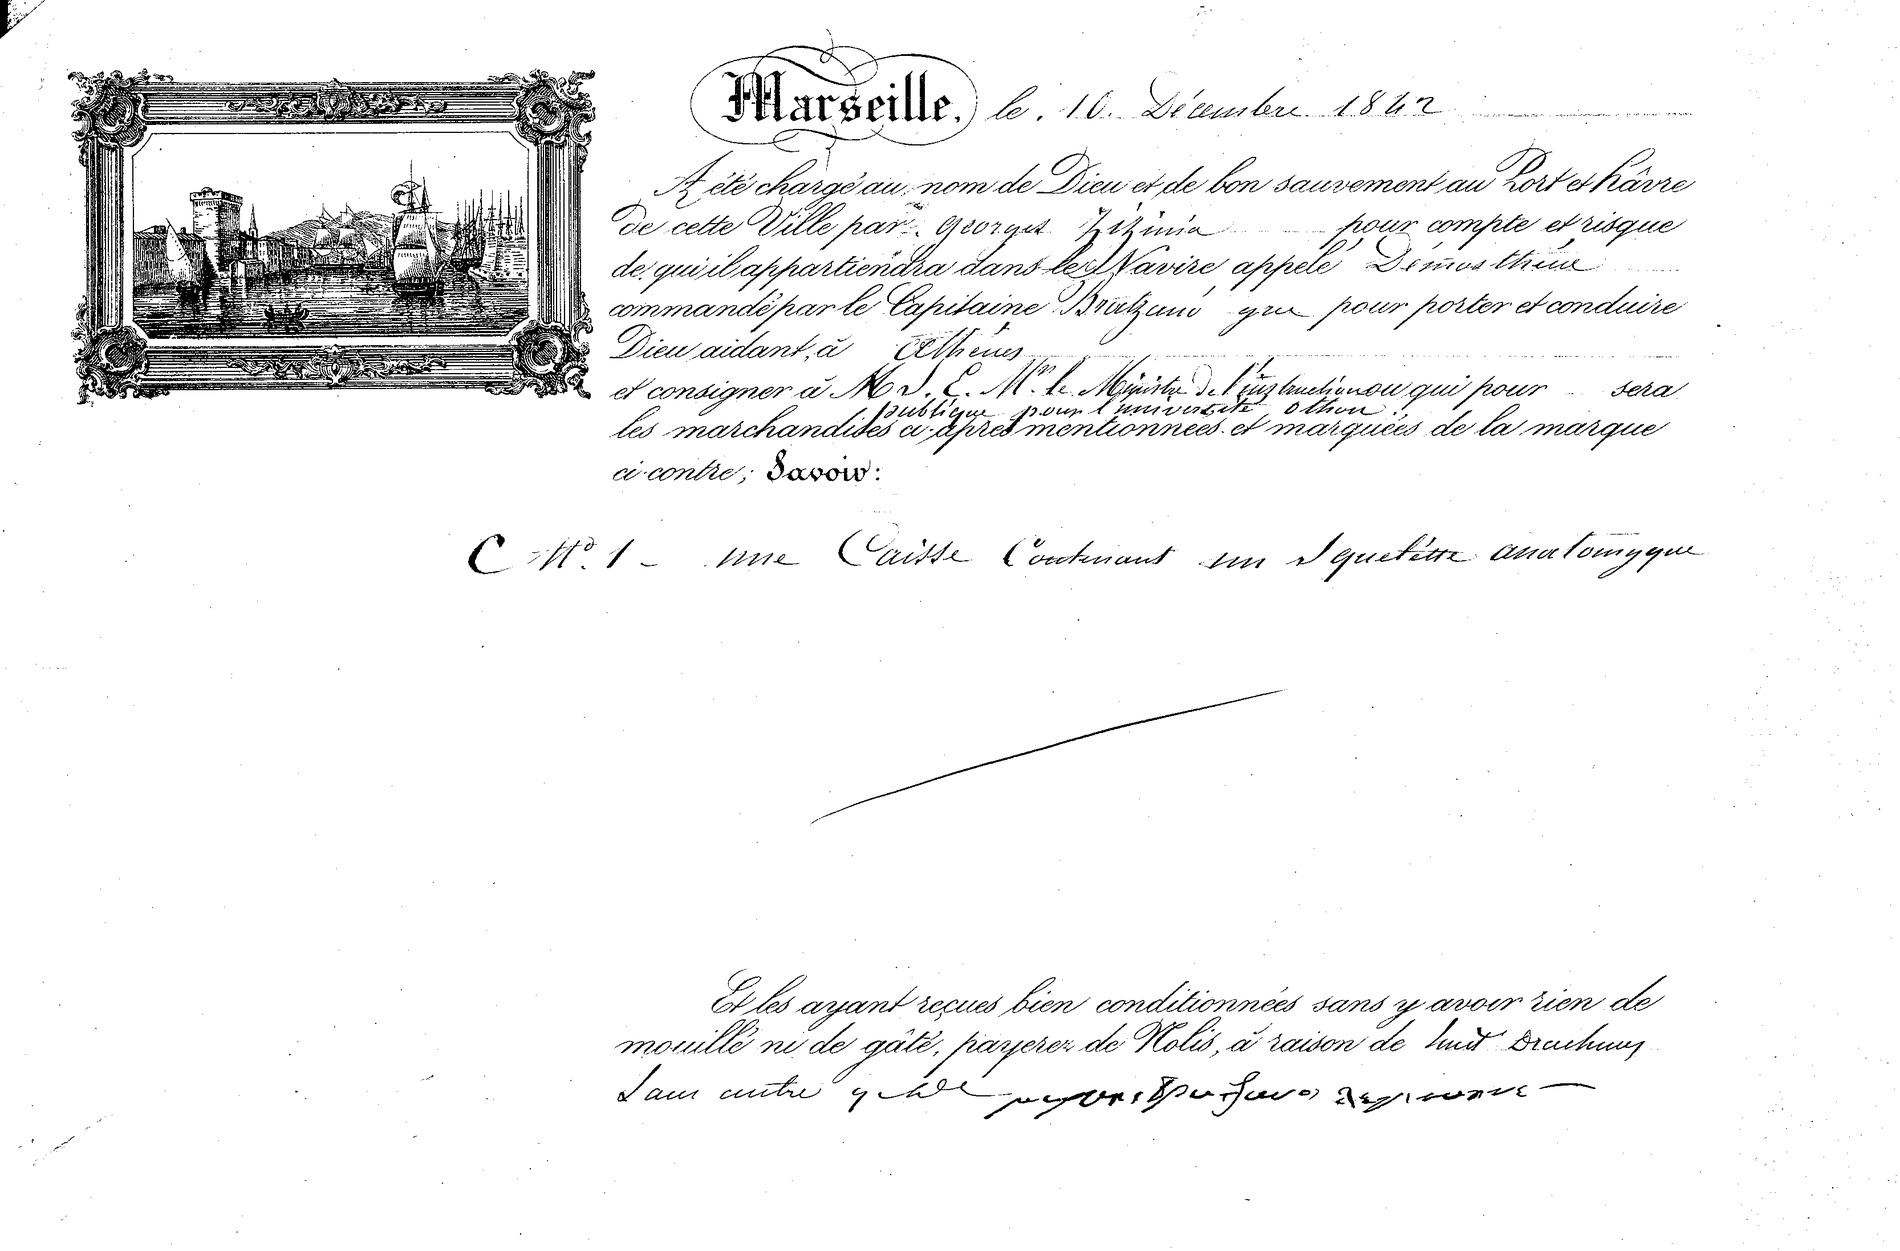 Marseille, le . 10. Décembre 1842
A été chargé au nom de Dieu et de bon sauvement au Port et hâvre
de cette Ville par Georges Zizinia pour compte et risque
de qui il appartiendra dans le Navire appelé Démosthène
commandé par le Capitaine grec pour porter et conduire
Dieu aidant, à Athènes
et consigner à M S. E. Mr. le Ministre de l'instruction ou qui pour sera
publique pour l'université othon
les marchandises ci-après mentionnées et marquées de la marque
ci-contre; Savoir:
C No. 1 - une Caisse Contenant un Squelette anatomyque
Et les ayant reçues bien conditionnées sans y avoir rien de
mouillé ni de gâté, payerez de Nolis, à raison de huit Drachmes
Sans autre